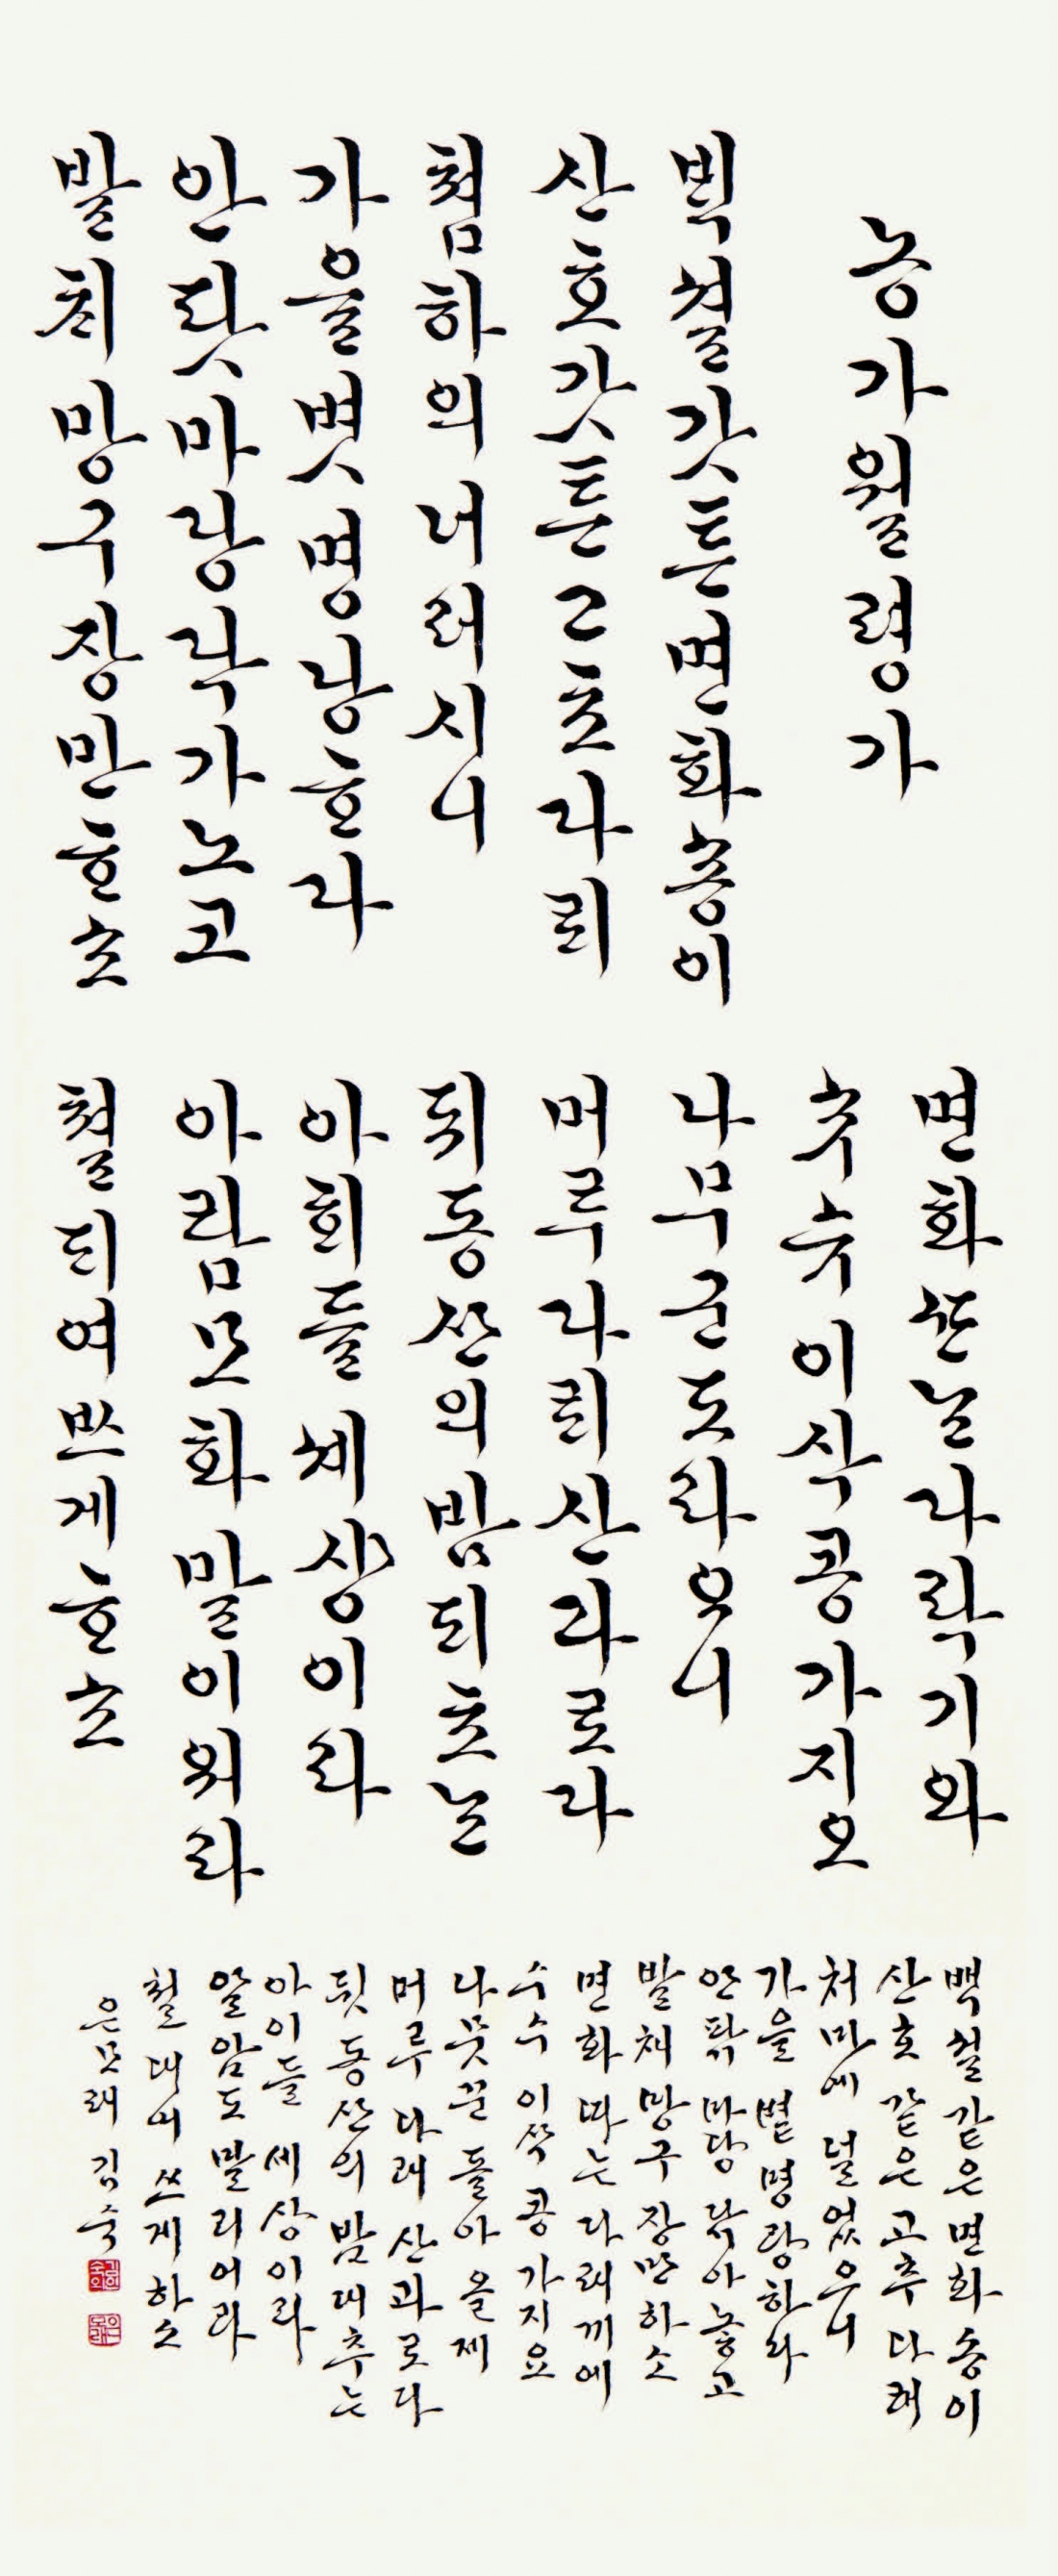 농가월령가
ᄇᆡᆨ셜갓튼면화송이
산호갓튼고초다ᄅᆡ
쳠하의너러시니
가을볏명낭ᄒᆞ다
안팟마당닥가노코
발ᄎᆡ망구장만ᄒᆞ소
면화ᄯᆞ는다락기와
수수이삭콩가지오
나무군도라오니
머루다ᄅᆡ산과로다
뒤동산의밤ᄃᆡ초는
아희들세상이라
아람모화말이워라
쳘ᄃᆡ여ᄡᅳ게ᄒᆞ소
백설같은면화송이
산호같은고추다래
처마에 널었으니
가을 볕 명랑하다
안팎 마당 닦아놓고
발채 망구 장만하소
면화 따는 다래끼에
수수 이삭 콩가지요
나뭇꾼 돌아올 제
머루 다래 산과로다
뒷동산의 밤 대추는
아이들 세상이라
알암도 말리어라
철 대여 쓰게하소
은모래 김숙